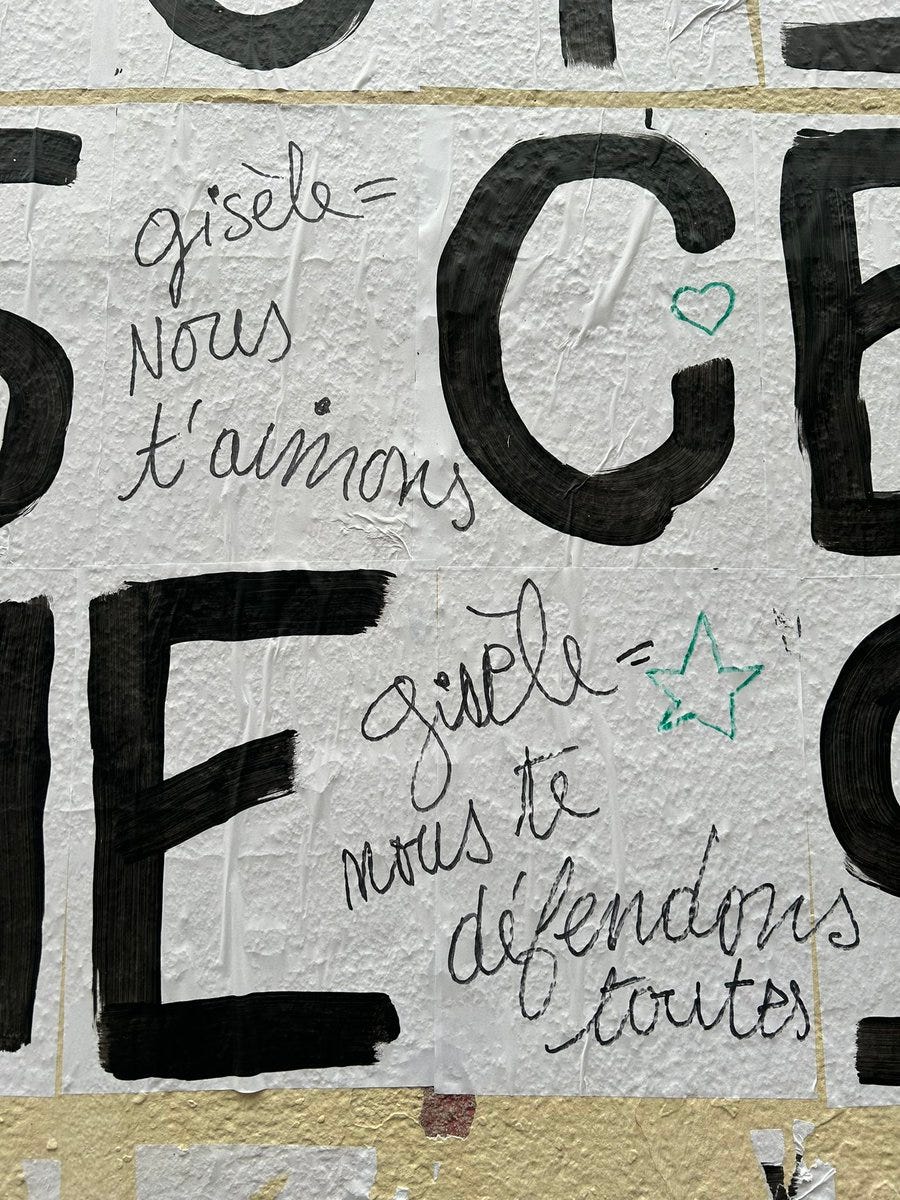 gisèle =
Nous
t'aimons
CE
E
gisèle =
nous te
défendons
toutes